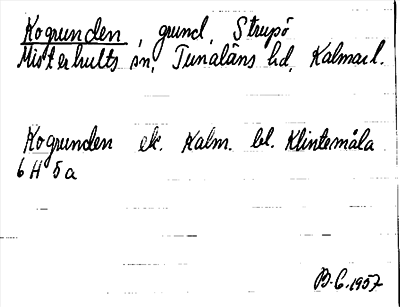 Kogrunden, grund, Strupö
Misterhults sn, Tunaläns hd, Kalmar l.
Kogrunden ek. Kalm. bl. Klintemåla
6 H 5a
B. C. 1957